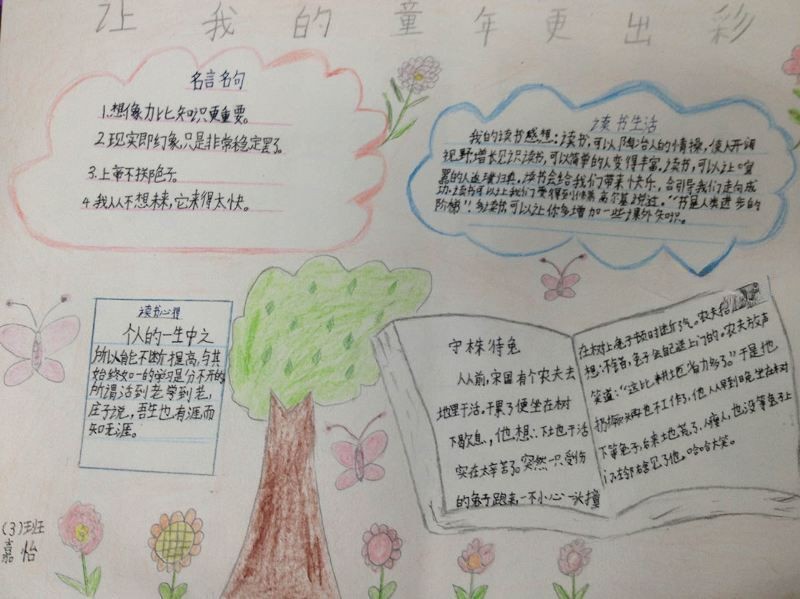 让我的童年更出彩
名言名句
1.想像力比知识更重要。
2.现实即幻象,只是非常稳定罢了。
3.上帝不掷骰子。
4.我从不想未来,它来得太快。
读书生活
我的读书感想:读书,可以陶冶人的情操,使人开阔
视野,增长见识读书,可以简单的人变得丰富,读书,可以让喧
嚣的人返璞归真,读书会给我们带来快乐,会引导我们走向成
功,读书可以让我们变得到快乐高尔基说过。“书是人类进步的
阶梯”!多读书,可以让你多增加一些课外知识。
读书心得
个人的一生中之
所以能不断提高,与其
始终如一的学习是分不开的
所谓活到老学到老,
庄子说,吾生也有涯而
知无涯。
守株待兔
从前,宋国有个农夫去
地里干活。干累了便坐在树
下歇息,他想:下土也干活
实在太辛苦了。突然一只受伤
的兔子跑来一不小心一头撞
在树上兔子顿时断了气。农夫
想:不错,兔子会自送上门的。农夫放声
笑道:“这比耕土地省力多了。”于是他
扔掉锄头再也不工作了,他从早到晚坐在树
下等兔子,后来土地荒了,人瘦了,也没等兔子上
门左邻右舍见了他。哈哈大笑。
(3)班
嘉怡